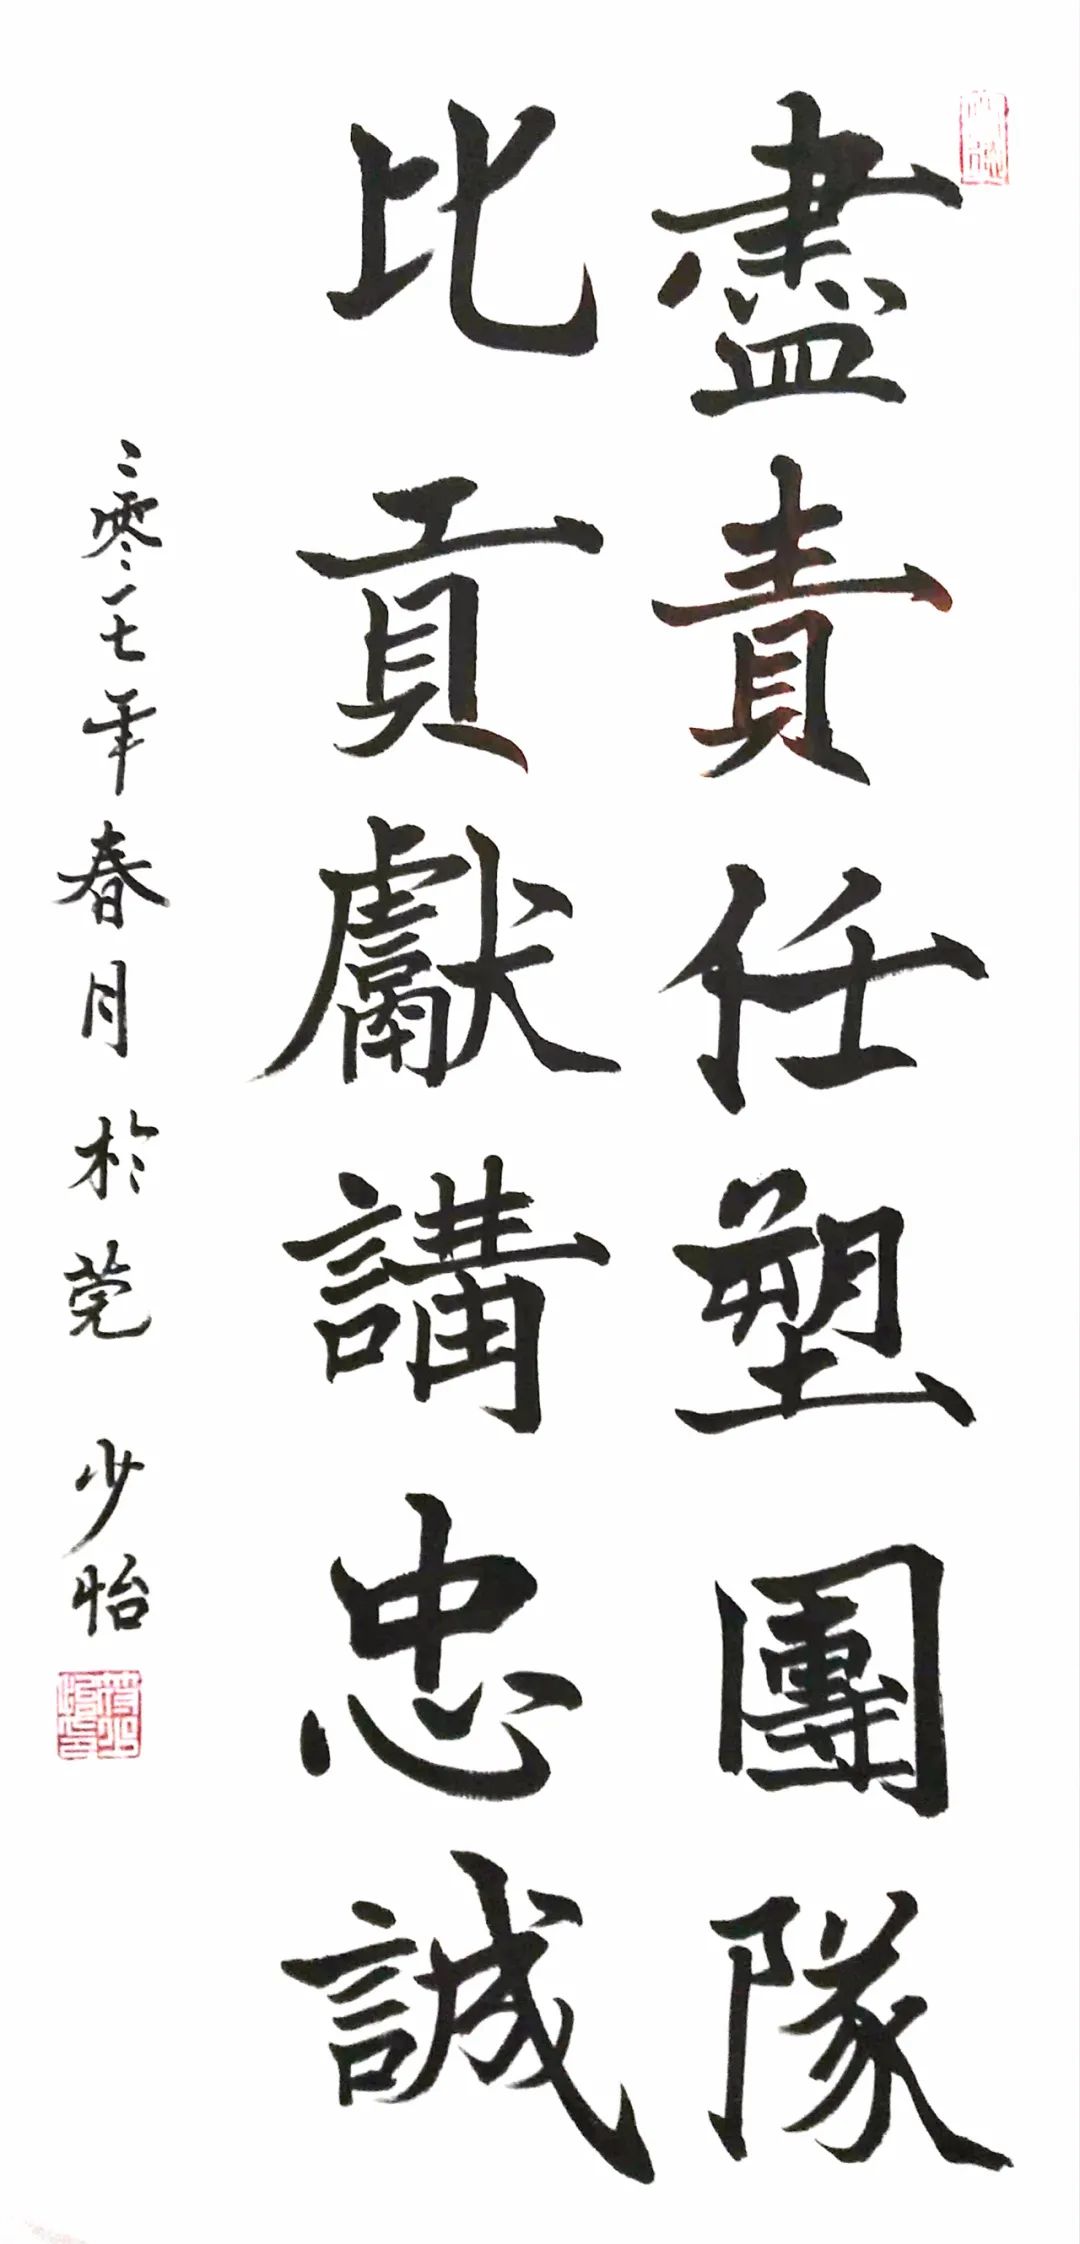 盡責任塑團隊
比貢獻講忠誠
二零一七年春月於莞 少怡